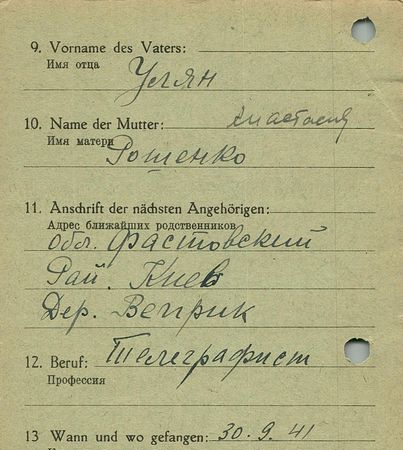 9. Vorname des Vaters:
Имя отца
Улян
10. Name der Mutter: Анастасия
Имя матери
Рошенко
11. Anschrift der nächsten Angehörigen:
Адрес ближайших родственников
Обл. Фастовский
Рай. Киев
Дер. Веприк
12. Beruf: Телеграфист
Профессия
13 Wann und wo gefangen: 30.9.41